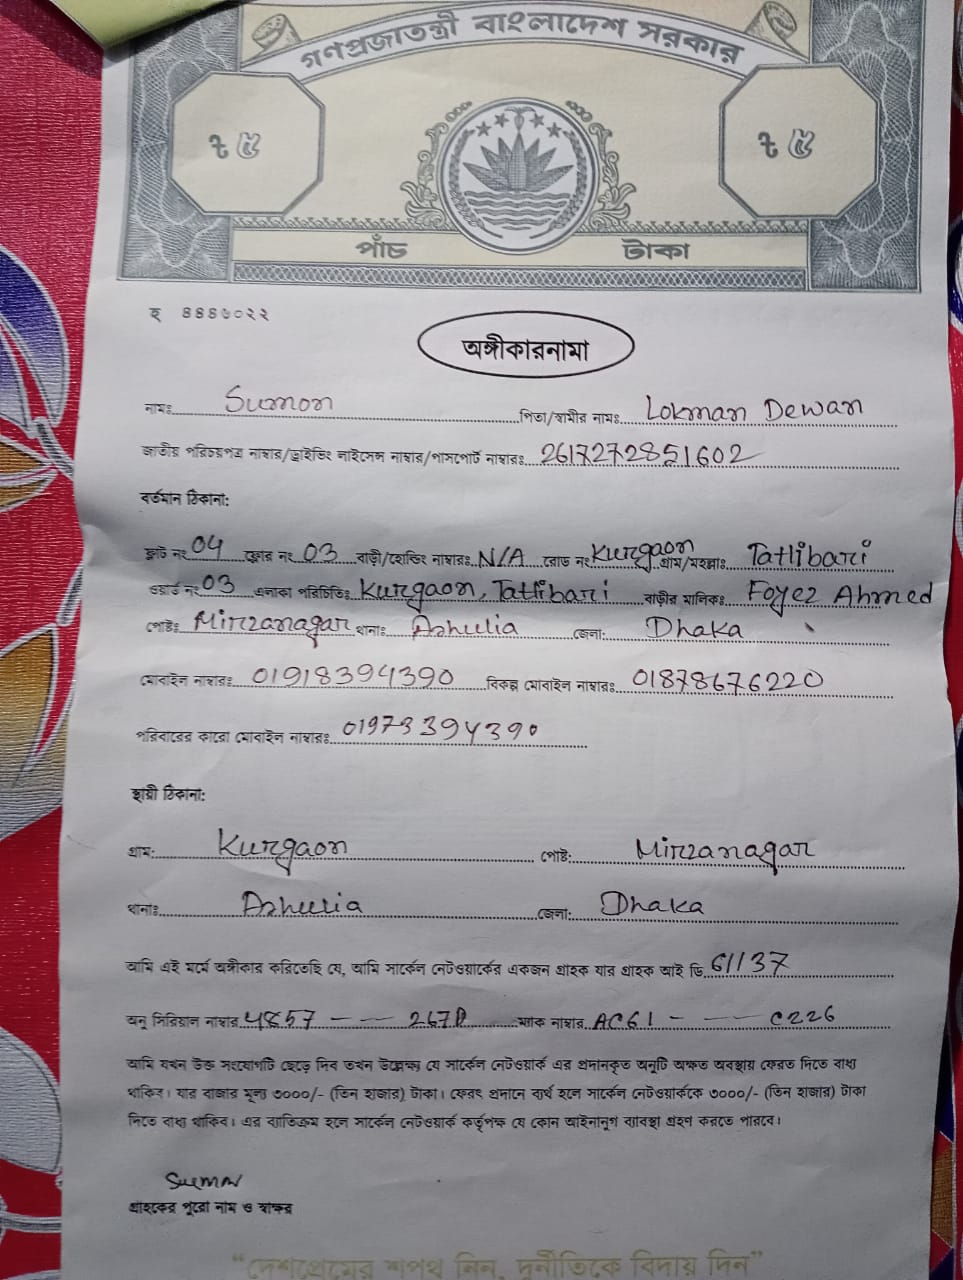 গণপ্রজাতন্ত্রী বাংলাদেশ সরকার
৳ ৫ ৳ ৫
পাঁচ টাকা
হ ৪৪৪৬০২২
অঙ্গীকারনামা
নামঃ Sumon পিতা/স্বামীর নামঃ Lokman Dewan
জাতীয় পরিচয়পত্র নাম্বার/ড্রাইভিং লাইসেন্স নাম্বার/পাসপোর্ট নাম্বারঃ 2617272851602
বর্তমান ঠিকানা:
ফ্লাট নং 04 ফ্লোর নং 03 বাড়ী/হোল্ডিং নাম্বারঃ N/A রোড নং Kurgaon গ্রাম/মহল্লাঃ Tatlibari
ওয়ার্ড নং 03 এলাকা পরিচিতিঃ Kurgaon, Tatlibari বাড়ীর মালিকঃ Foyez Ahmed
পোষ্টঃ Mirzanagar থানাঃ Ashulia জেলা: Dhaka
মোবাইল নাম্বারঃ 01918394390 বিকল্প মোবাইল নাম্বারঃ 01878676220
পরিবারের কারো মোবাইল নাম্বারঃ 01973394390
স্থায়ী ঠিকানা:
গ্রাম: Kurgaon পোষ্ট: Mirzanagar
থানাঃ Ashulia জেলা: Dhaka
আমি এই মর্মে অঙ্গীকার করিতেছি যে, আমি সার্কেল নেটওয়ার্কের একজন গ্রাহক যার গ্রাহক আই ডি 61137
অনু সিরিয়াল নাম্বার 4857 - — 267D ম্যাক নাম্বার AC61 - — C226
আমি যখন উক্ত সংযোগটি ছেড়ে দিব তখন উল্লেক্ষ্য যে সার্কেল নেটওয়ার্ক এর প্রদানকৃত অনুটি অক্ষত অবস্থায় ফেরত দিতে বাধ্য
থাকিব। যার বাজার মূল্য ৩০০০/- (তিন হাজার) টাকা। ফেরৎ প্রদানে ব্যর্থ হলে সার্কেল নেটওয়ার্ককে ৩০০০/- (তিন হাজার) টাকা
দিতে বাধ্য থাকিব। এর ব্যতিক্রম হলে সার্কেল নেটওয়ার্ক কর্তৃপক্ষ যে কোন আইনানুগ ব্যাবস্থা গ্রহণ করতে পারবে।
Sumon
গ্রাহকের পুরো নাম ও স্বাক্ষর
“দেশপ্রেমের শপথ নিন, দুর্নীতিকে বিদায় দিন”